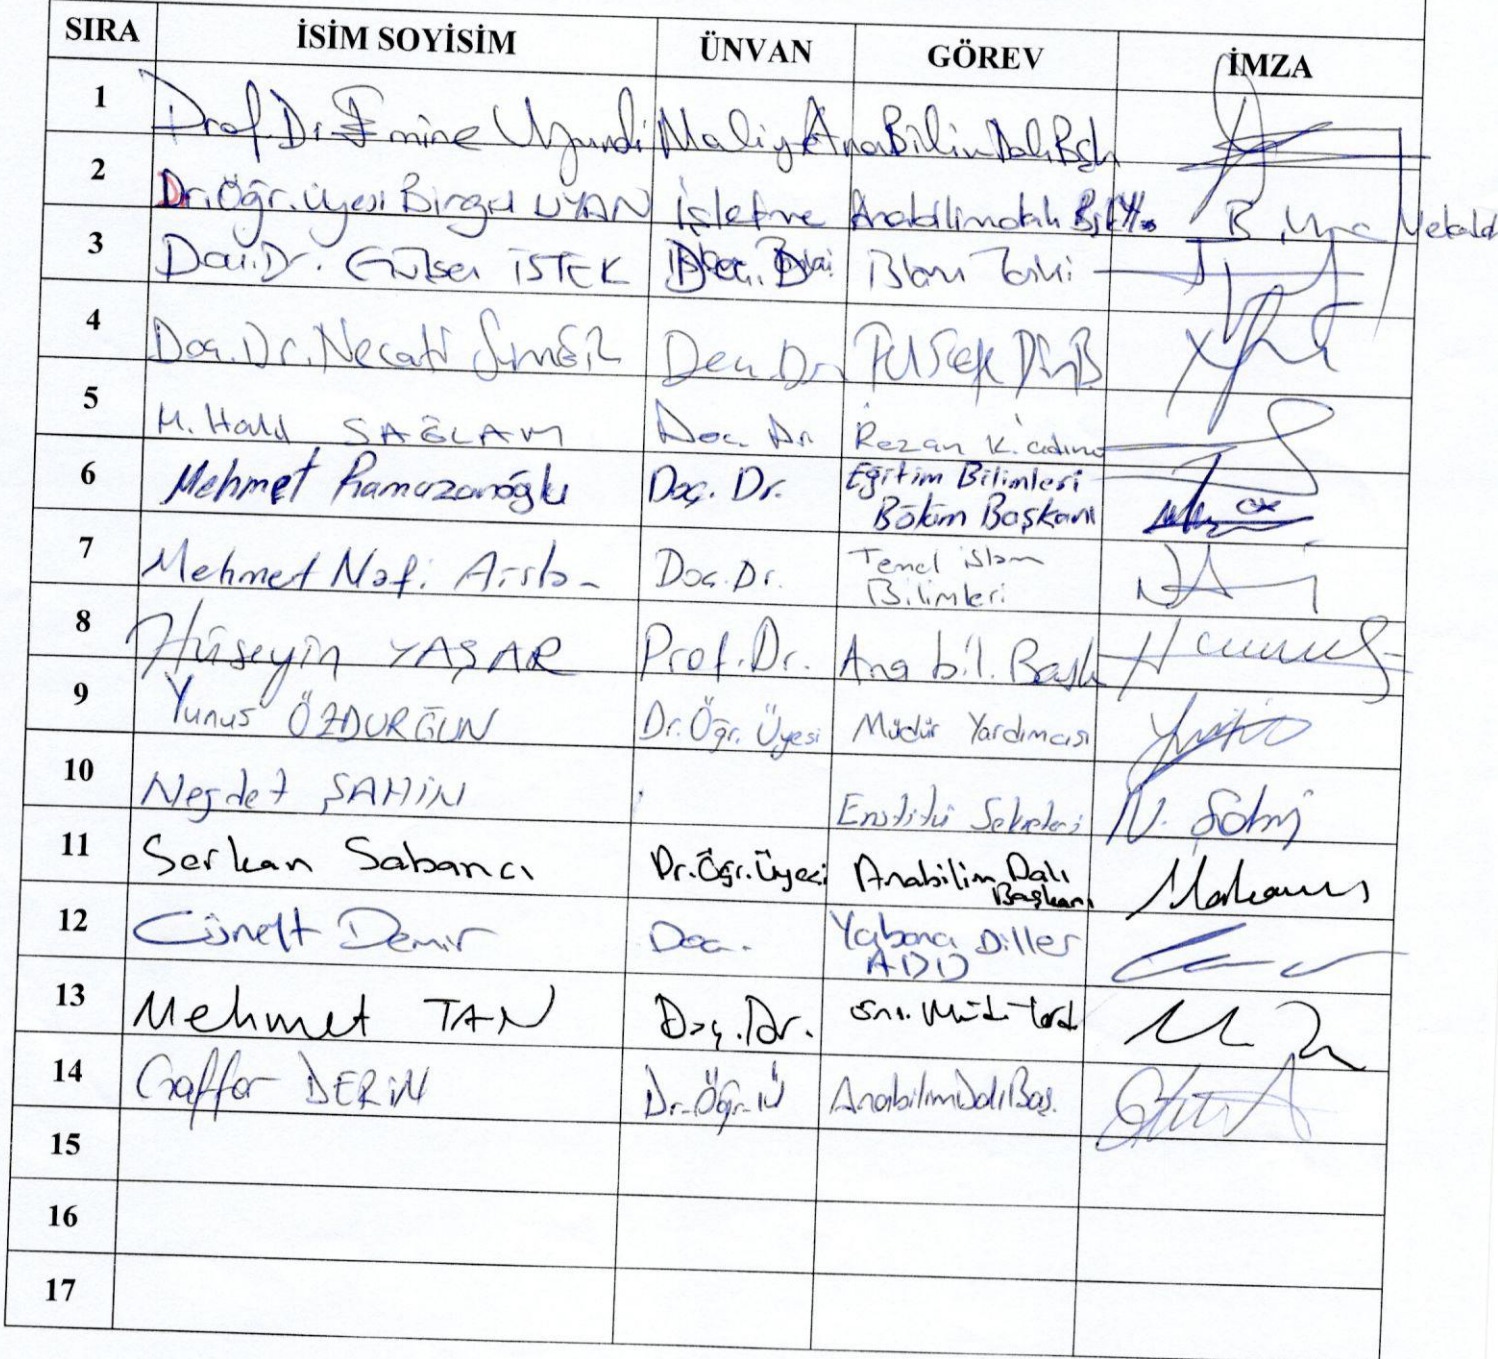 SIRA İSİM SOYİSİM ÜNVAN GÖREV İMZA
1 Prof. Dr. Emine Maliye AnaBilim Dalı Bşk
2 Dr. Öğr. Üyesi Birgül UYAN İşletme Anabilimdalı B.
3 Doç. Dr. Gülsen İSTEK İslam Tarihi
4 Doç. Dr. Necati Doç. Dr.
5 M. Halil SAĞLAM Doç. Dr. Rezan K. adına
6 Mehmet Ramazanoğlu Doç. Dr. Eğitim Bilimleri
Bölüm Başkanı
7 Mehmet Nafi Doç. Dr. Temel islam
Bilimleri
8 Hüseyin YAŞAR Prof. Dr. Ana bil. Bask
9 Yunus ÖZDURĞUN Dr. Öğr. Üyesi Müdür Yardımcısı
10 Neşdet ŞAHİN Enstitü Sekreteri N. Şahin
11 Serkan Sabancı Dr. Öğr. Üyesi Anabilim Dalı
Başkanı
12 Cüneyt Demir Doç. Yabancı Diller
ABD
13 Mehmet TAN Doç. Dr.
14 Gaffar DERİN Dr. Öğr. Ü Anabilim Dalı Baş.
15
16
17